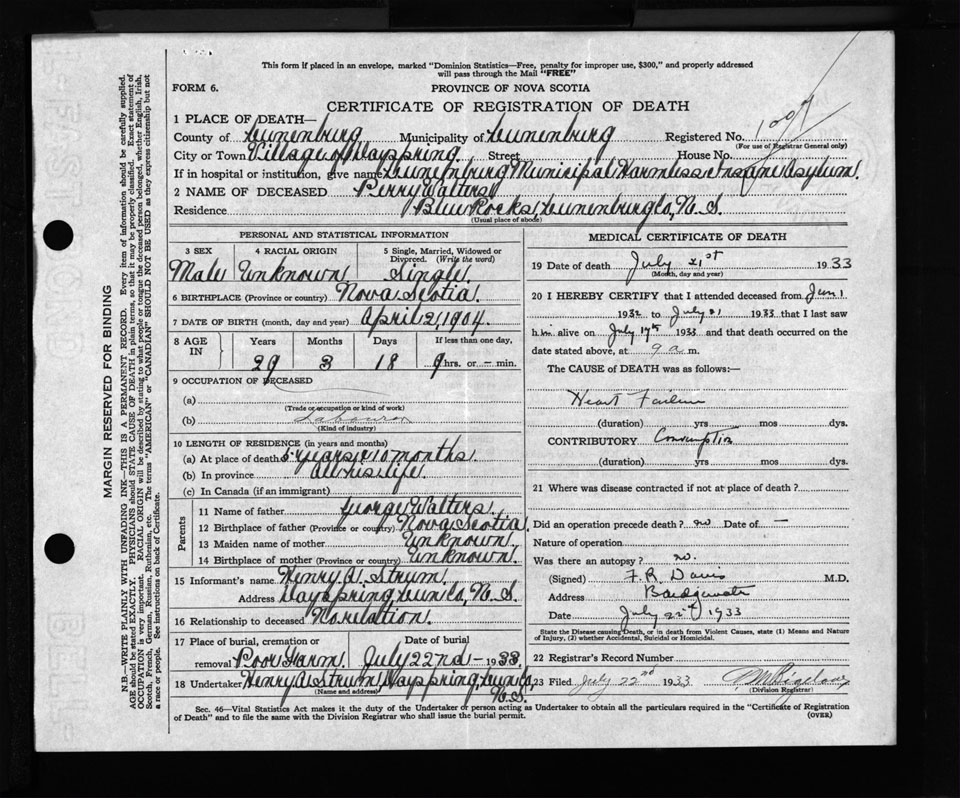 This form if placed in an envelope, marked "Dominion Statistics—Free, penalty for improper use, $300," and properly addressed
will pass through the Mail "FREE"
FORM 6.
PROVINCE OF NOVA SCOTIA
CERTIFICATE OF REGISTRATION OF DEATH
1 PLACE OF DEATH—
County of Lunenburg Municipality of Lunenburg Registered No.
(For use of Registrar General only)
City or Town Village of Dayspring Street House No.
If in hospital or institution, give name Lunenburg Municipal Harmless Insane Asylum.
2 NAME OF DECEASED Perry Walters
Residence Blue Rocks, Lunenburg Co, N.S.
(Usual place of abode)
PERSONAL AND STATISTICAL INFORMATION
3 SEX 4 RACIAL ORIGIN 5 Single, Married, Widowed or
Divorced. (Write the word)
Male Unknown Single.
6 BIRTHPLACE (Province or country) Nova Scotia.
7 DATE OF BIRTH (month, day and year) April 2, 1904.
8 AGE IN Years Months Days If less than one day,
29 3 18 9 hrs. or — min.
9 OCCUPATION OF DECEASED
(a)
(Trade or occupation or kind of work)
(b) Labourer
(Kind of industry)
10 LENGTH OF RESIDENCE (in years and months)
(a) At place of death 5 years & 10 months
(b) In province All his life.
(c) In Canada (if an immigrant)
Parents
11 Name of father George Walters
12 Birthplace of father (Province or country) Nova Scotia.
13 Maiden name of mother Unknown.
14 Birthplace of mother (Province or country) Unknown.
15 Informant's name Henry A. Strum.
Address Dayspring, Lun Co, N.S.
16 Relationship to deceased No relation.
17 Place of burial, cremation or Date of burial
removal Poor Farm. July 22nd - 1933.
18 Undertaker Henry A Strum, Dayspring, Lun Co,
N.S.
(Name and address)
MEDICAL CERTIFICATE OF DEATH
19 Date of death July 21st 1933
(Month, day and year)
20 I HEREBY CERTIFY that I attended deceased from Jun 1
1932 to July 21 1933 that I last saw
h im alive on July 19th 1933 and that death occurred on the
date stated above, at 9 a m.
The CAUSE of DEATH was as follows:—
Heart Failure
(duration) yrs mos dys.
CONTRIBUTORY Consumption
(duration) yrs mos dys.
21 Where was disease contracted if not at place of death?
Did an operation precede death? no Date of —
Nature of operation
Was there an autopsy? no.
(Signed) F. R. Davis M.D.
Address Bridgewater
Date July 22nd 1933
State the Disease causing Death, or in death from Violent Causes, state (1) Means and Nature
of Injury, (2) whether Accidental, Suicidal or Homicidal.
22 Registrar's Record Number
23 Filed July 22nd 1933 Bigelow
(Division Registrar)
Sec. 46—Vital Statistics Act makes it the duty of the Undertaker or person acting as Undertaker to obtain all the particulars required in the "Certificate of Registration
of Death" and to file the same with the Division Registrar who shall issue the burial permit.
(OVER)
MARGIN RESERVED FOR BINDING
N.B.—WRITE PLAINLY WITH UNFADING INK—THIS IS A PERMANENT RECORD. Every item of information should be carefully supplied.
AGE should be stated EXACTLY. PHYSICIANS should STATE CAUSE OF DEATH in plain terms, so that it may be properly classified. Exact statement of
OCCUPATION is very important. RACIAL ORIGIN will be described by stating to what people or tongue the deceased person belonged, whether English, Irish,
Scotch, French, German, Russian, Ruthenian, etc. The terms "AMERICAN" or "CANADIAN" SHOULD NOT BE USED as they express citizenship but not
a race or people. See instructions on back of Certificate.